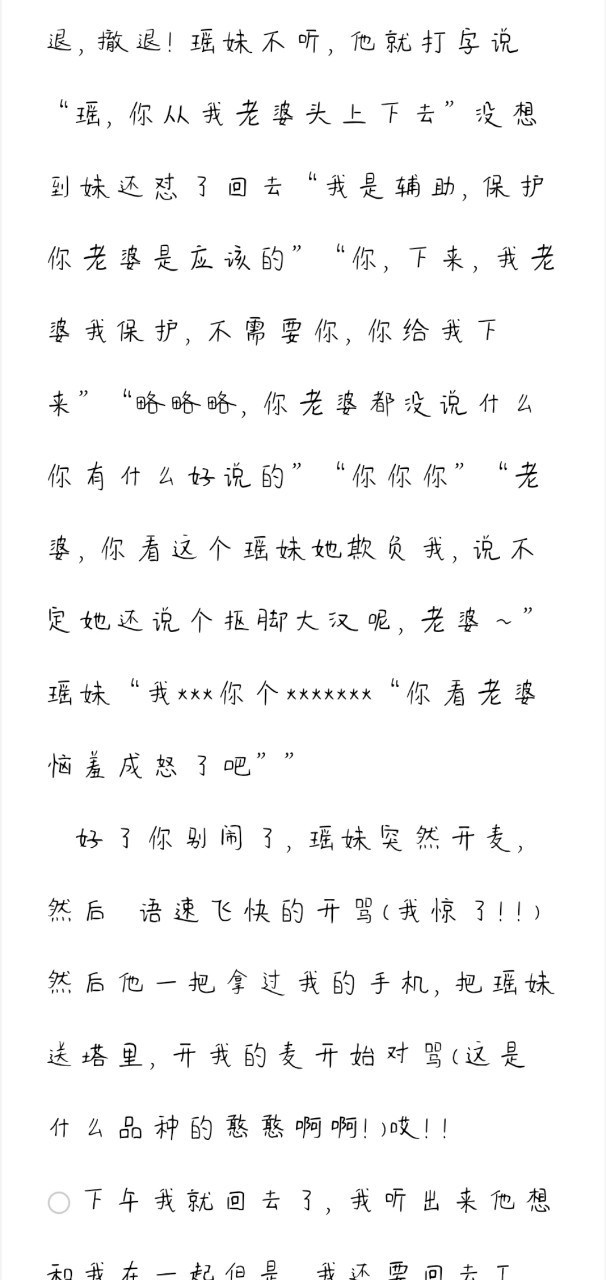 退,撤退!瑶妹不听,他就打字说
“瑶,你从我老婆头上下去”没想
到妹还怼了回去“我是辅助,保护
你老婆是应该的”“你,下来,我老
婆我保护,不需要你,你给我下
来”“略略略,你老婆都没说什么
你有什么好说的”“你你你”“老
婆,你看这个瑶妹她欺负我,说不
定她还说个抠脚大汉呢,老婆~”
瑶妹“我***你个*******“你看老婆
恼羞成怒了吧””
好了你别闹了,瑶妹突然开麦,
然后 语速飞快的开骂(我惊了!!)
然后他一把拿过我的手机,把瑶妹
送塔里,开我的麦开始对骂(这是
什么品种的憨憨啊啊!)哎!!
下午我就回去了,我听出来他想
和我在一起但是 我还要回去工